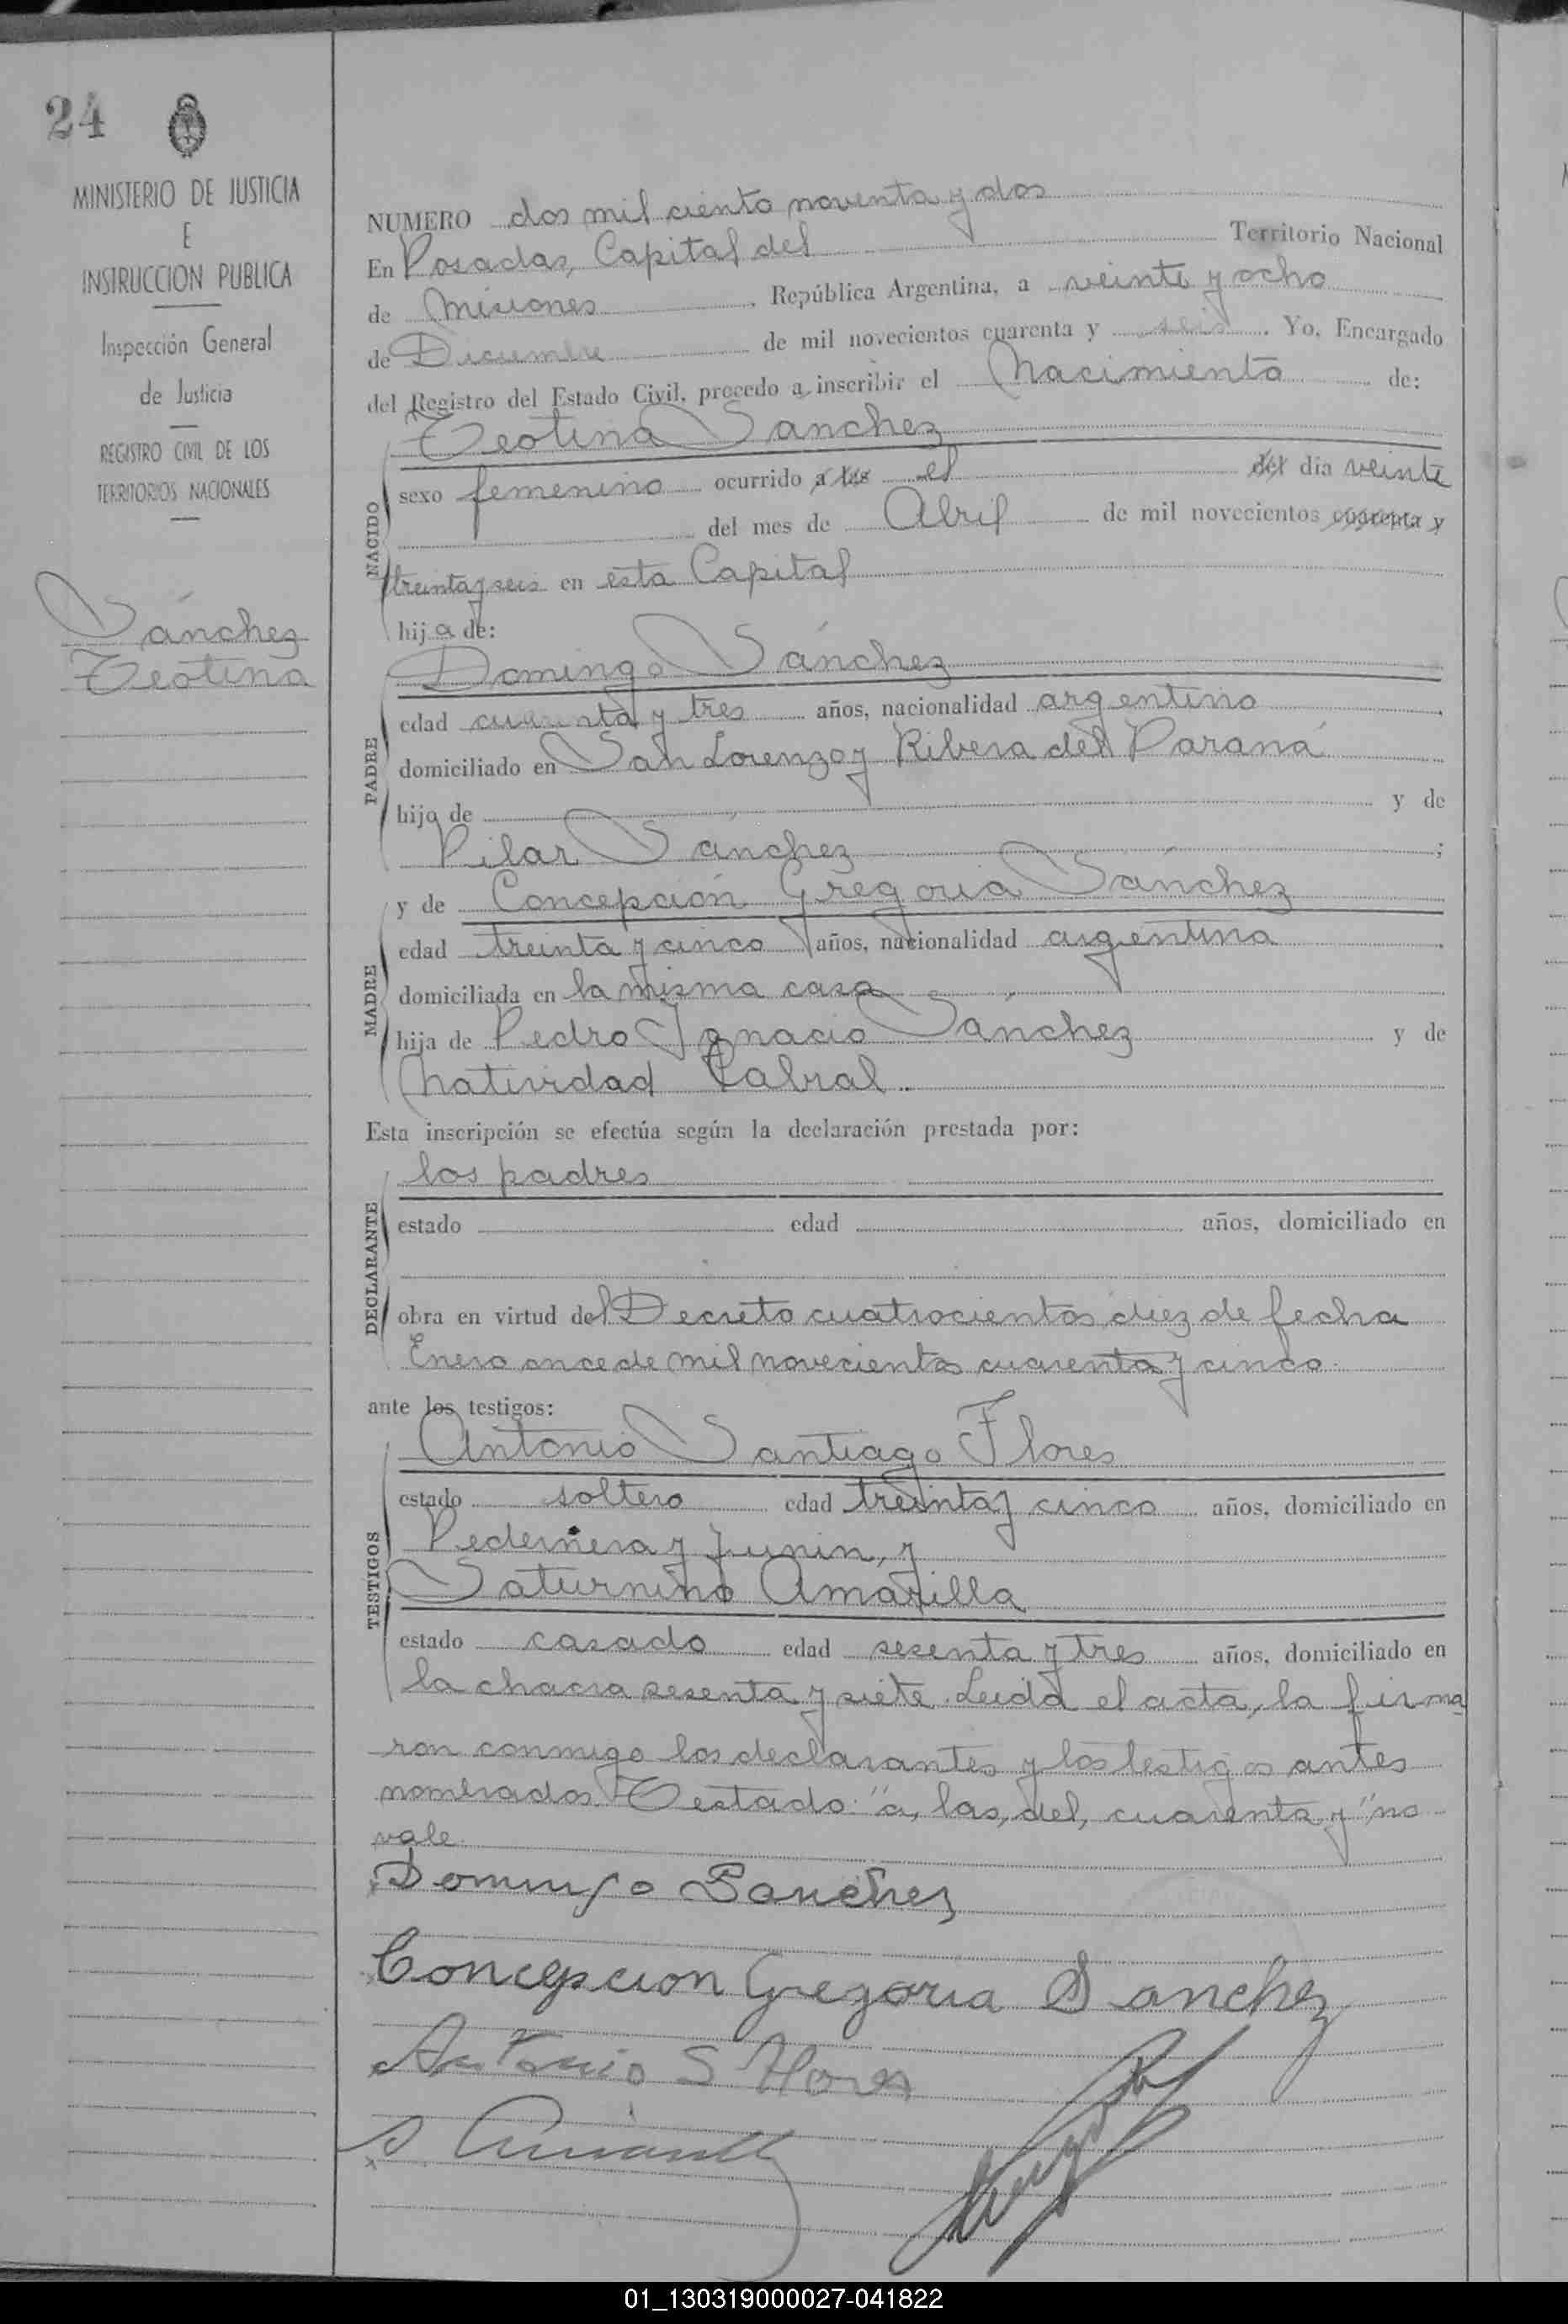 24
MINISTERIO DE JUSTICIA
E
INSTRUCCION PUBLICA
Inspección General
de Justicia
REGISTRO CIVIL DE LOS
TERRITORIOS NACIONALES
Sánchez
Teotina
NUMERO dos mil ciento noventa y dos
En Posadas, Capital del Territorio Nacional
de Misiones, República Argentina, a veinte y ocho
de Diciembre de mil novecientos cuarenta y seis. Yo, Encargado
del Registro del Estado Civil, procedo a inscribir el Nacimiento de:
Teotina Sanchez
NACIDO
sexo femenino ocurrido a las el del dia veinte
del mes de Abril de mil novecientos cuarenta y
treinta y seis en esta Capital
hija de:
Domingo Sánchez
PADRE
edad cuarenta y tres años, nacionalidad argentino
domiciliado en San Lorenzo y Ribera del Paraná
hijo de y de
Pilar Sánchez ;
y de Concepción Gregoria Sánchez
MADRE
edad treinta y cinco años, nacionalidad argentina
domiciliada en la misma casa
hija de Pedro Ignacio Sánchez y de
Natividad Cabral.
Esta inscripción se efectúa según la declaración prestada por:
los padres
DECLARANTE
estado edad años, domiciliado en
obra en virtud del Decreto cuatrocientos diez de fecha
Enero once de mil novecientos cuarenta y cinco.
ante los testigos:
Antonio Santiago Flores
TESTIGOS
estado soltero edad treinta y cinco años, domiciliado en
Pedernera y Junin, y
Saturnino Amarilla
estado casado edad sesenta y tres años, domiciliado en
la chacra sesenta y siete. Leida el acta, la firma
ron conmigo los declarantes y los testigos antes
nombrados. Testado: "a, las, del, cuarenta y" no
vale.
Domingo Sanchez
Concepcion Gregoria Sanchez
Antonio S Flores
S. Amarilla
01_130319000027-041822